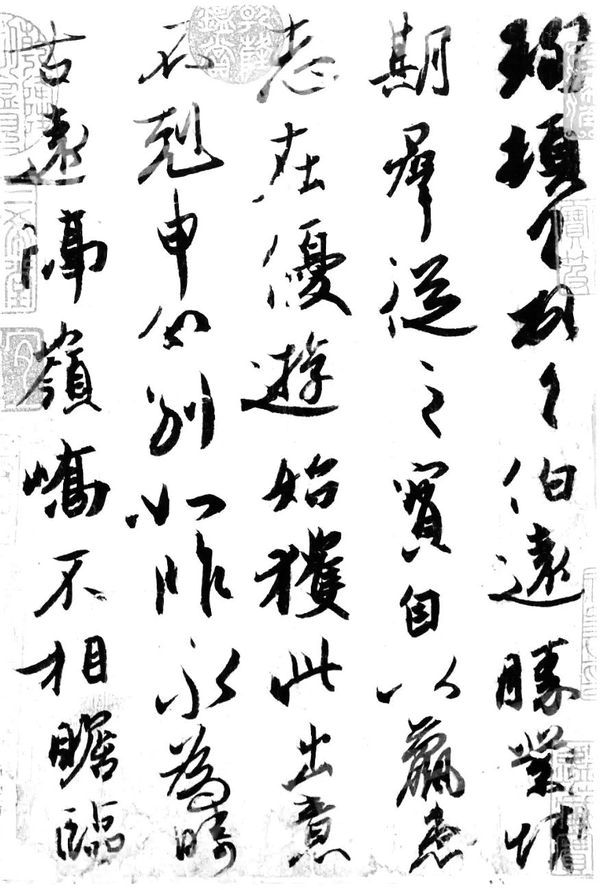 珣頓首頓首伯遠勝業情
期羣從之寶自以羸患
志在優遊始獲此出意
不剋申分別如昨永為疇
古遠隔嶺嶠不相瞻臨